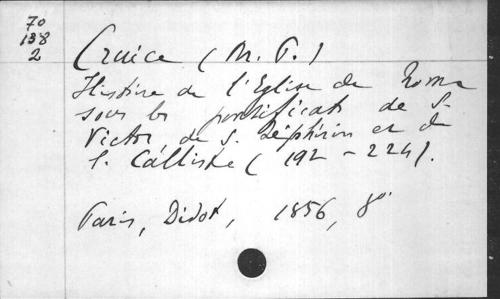 70
138
2
Cruice (M. P.)
Histoire de l'Eglise de Rome
sous les pontificats de S.
Victor de S. Zéphirin et de
S. Calliste (192 - 224).
Paris, Didot, 1856, 8°